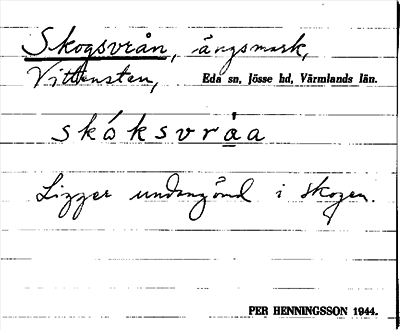 Skogsvrån, ängsmark,
Vittensten, Eda sn, Jösse hd, Värmlands län.
skóksvrå̱a
Ligger undangömd i skogen.
PER HENNINGSSON 1944.